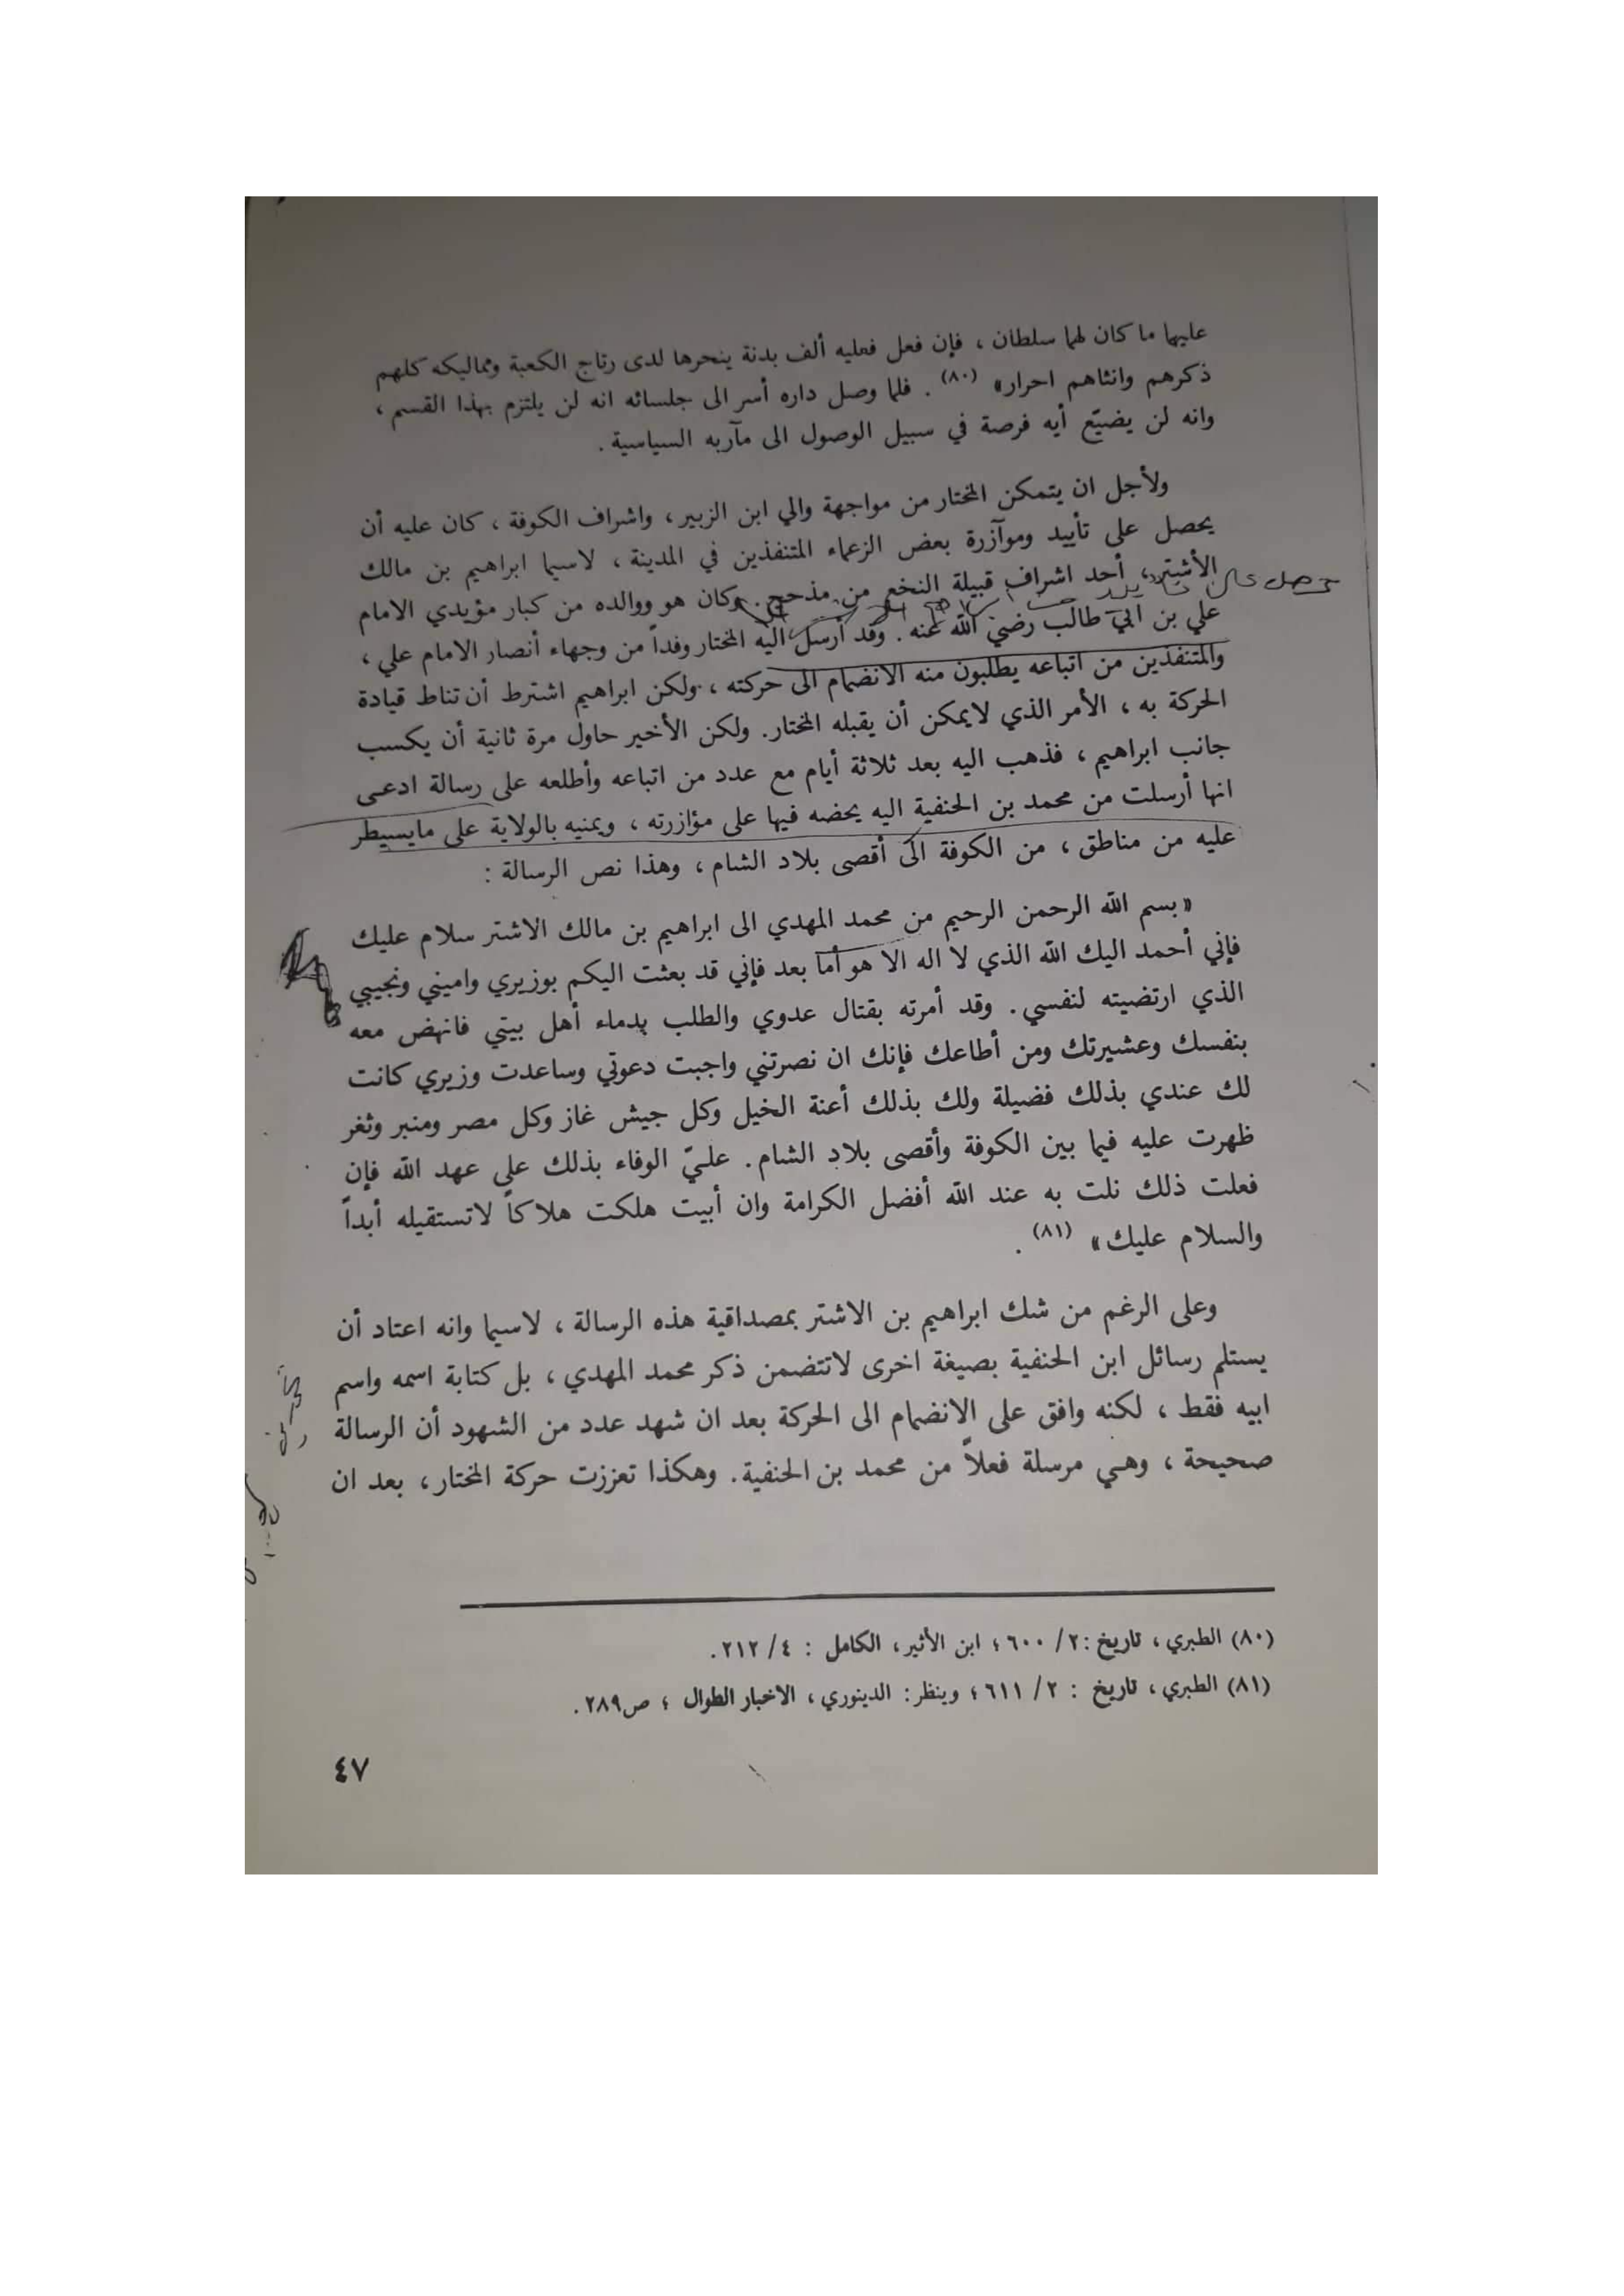 عليهما ما كان لهما سلطان ، فإن فعل فعليه ألف بدنة ينحرها لدى رتاج الكعبة ومماليكه كلهم
ذكرهم وانثاهم احرار» (٨٠) . فلما وصل داره أسر الى جلسائه انه لن يلتزم بهذا القسم ،
وانه لن يضيّع أيه فرصة في سبيل الوصول الى مآربه السياسية .
ولأجل ان يتمكن المختار من مواجهة والي ابن الزبير ، واشراف الكوفة ، كان عليه أن
يحصل على تأييد وموآزرة بعض الزعماء المتنفذين في المدينة ، لاسيما ابراهيم بن مالك
الأشتر ، أحد اشراف قبيلة النخع من مذحج . وكان هو ووالده من كبار مؤيدي الامام
علي بن ابي طالب رضي الله عنه . وقد أرسل اليه المختار وفداً من وجهاء أنصار الامام علي ،
والمتنفذين من اتباعه يطلبون منه الانضمام الى حركته ، ولكن ابراهيم اشترط أن تناط قيادة
الحركة به ، الأمر الذي لايمكن أن يقبله المختار. ولكن الأخير حاول مرة ثانية أن يكسب
جانب ابراهيم ، فذهب اليه بعد ثلاثة أيام مع عدد من اتباعه وأطلعه على رسالة ادعى
انها أرسلت من محمد بن الحنفية اليه يحضه فيها على مؤازرته ، ويمنيه بالولاية على مايسيطر
عليه من مناطق ، من الكوفة الى أقصى بلاد الشام ، وهذا نص الرسالة :
«بسم الله الرحمن الرحيم من محمد المهدي الى ابراهيم بن مالك الاشتر سلام عليك
فإني أحمد اليك الله الذي لا اله الا هو أما بعد فإني قد بعثت اليكم بوزيري واميني ونجيبي
الذي ارتضيته لنفسي. وقد أمرته بقتال عدوي والطلب بدماء أهل بيتي فانهض معه
بنفسك وعشيرتك ومن أطاعك فإنك ان نصرتني واجبت دعوتي وساعدت وزيري كانت
لك عندي بذلك فضيلة ولك بذلك أعنة الخيل وكل جيش غاز وكل مصر ومنبر وثغر
ظهرت عليه فيما بين الكوفة وأقصى بلاد الشام. عليّ الوفاء بذلك على عهد الله فإن
فعلت ذلك نلت به عند الله أفضل الكرامة وان أبيت هلكت هلاكاً لاتستقيله أبداً
والسلام عليك» (٨١) .
وعلى الرغم من شك ابراهيم بن الاشتر بمصداقية هذه الرسالة ، لاسيما وانه اعتاد أن
يستلم رسائل ابن الحنفية بصيغة اخرى لاتتضمن ذكر محمد المهدي ، بل كتابة اسمه واسم
ابيه فقط ، لكنه وافق على الانضمام الى الحركة بعد ان شهد عدد من الشهود أن الرسالة
صحيحة ، وهي مرسلة فعلاً من محمد بن الحنفية. وهكذا تعززت حركة المختار ، بعد ان
(٨٠) الطبري ، تاريخ : ٢/ ٦٠٠ ؛ ابن الأثير، الكامل : ٤/ ٢١٢.
(٨١) الطبري ، تاريخ : ٢/ ٦١١ ؛ وينظر: الدينوري ، الاخبار الطوال ؛ ص٢٨٩.
٤٧